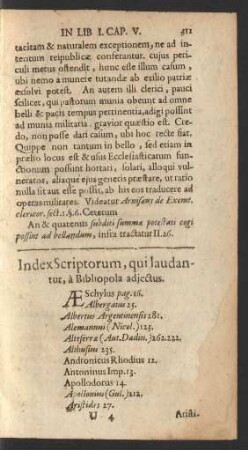 IN LIB I. CAP. V. 411
tacitam & naturalem exceptionem, ne ad in-
teritum reipublicæ conferantur. cujus peri-
culi metus ostendit, hunc esse illum casum,
ubi nemo a munere tutandæ ab exilio patriæ
exsolvi potest. An autem illi clerici, pauci
scilicet, qui pastorum munia obeunt ad omne
belli & pacis tempus pertinentia, adigi possint
ad munia militaria. gravior quæstio est. Cre-
do, non posse dari casum, ubi hoc recte fiat.
Quippe non tantum in bello, sed etiam in
prælio locus est & usus Ecclesiasticarum fun-
ctionum possunt hortari, solari, alloqui vul-
neratos, aliaque ejus generis præstare, ut ratio
nulla sit aut esse possit, ab his eos traducere ad
operas militares. Videatur Arnisæus de Exemt.
clericor. sect. 1. §. 6. Ceterum
An & quatenus subditi summæ potestati cogi
possint ad bellandum, infra tractatur II. 26.
Index Scriptorum, qui laudan-
tur, à Bibliopola adjectus.
ÆSchylus pag. 16.
Albergatus 25.
Albertus Argentinensis 281.
Alemannus (Nicol.) 123.
Alteserra (Ant. Dadin.) 262. 222.
Althusius 235.
Andronicus Rhodius 12.
Antoninus Imp. 13.
Apollodorus 14.
Apollonius (Guil.) 212.
Aristides 27.
U 4 Aristi-